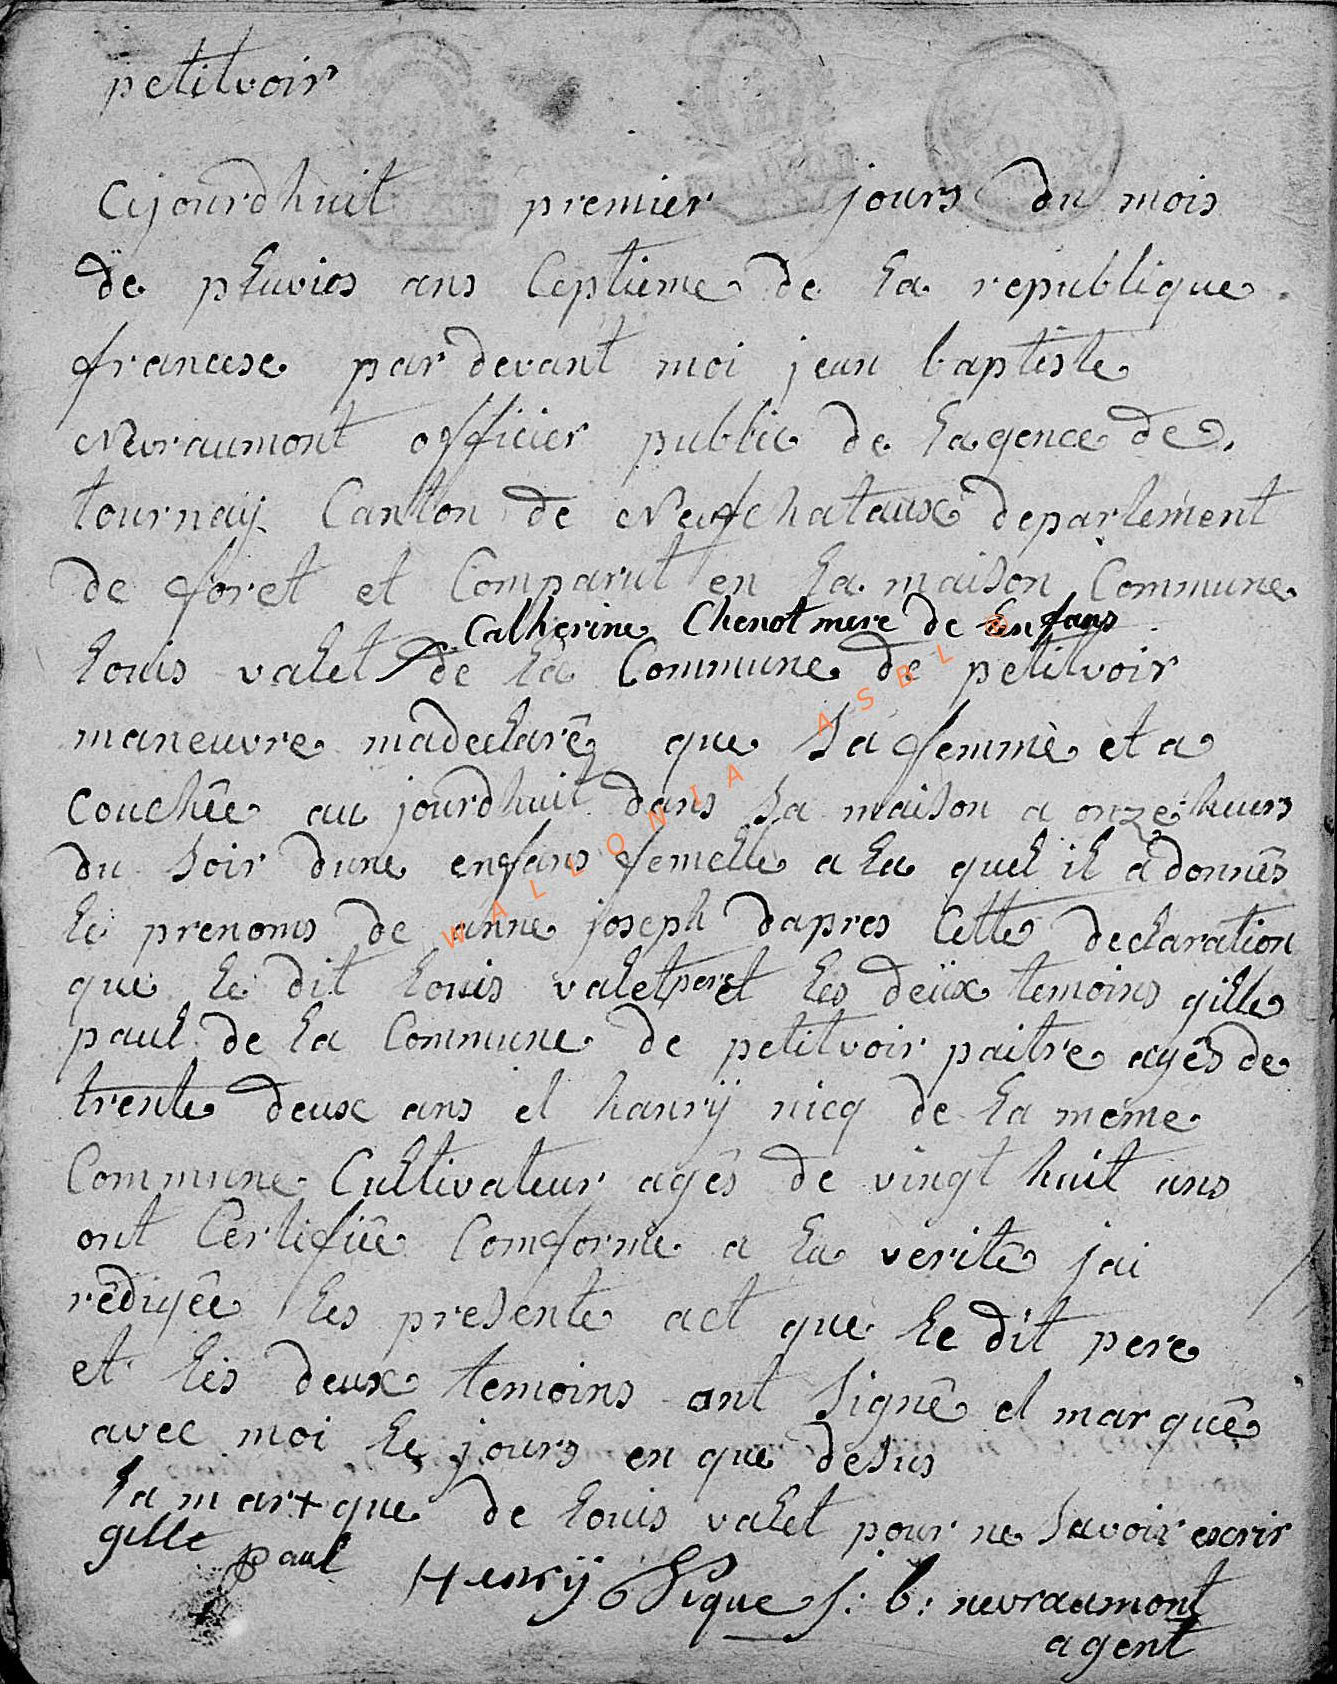 petitvoir
Cijourdhuit premier jours du mois
de pluvios ans Ceptieme de la republique
francese par devant moi jean baptiste
Nevraumont officier public de lagence de
tournaÿ Canton de Neufchataux departement
de foret et Comparut en la maison Commune
Catherine Chenot mere de Enfans
louis valet de la Commune de petitvoir
maneuvre madeclarê que sa femme et a
Couchêe au jourdhuit dans sa maison a onze heurs
du soir dune enfans femelle a la quel il a donnês
le prenoms de anne joseph dapres Cette declaration
que le dit louis valet pere et les deüx temoins gille
paul de la Commune de petitvoir paitre agês de
trente deux ans et hanrÿ nicq de la meme
Commune Cultivateur agês de vingt huit ans
ont Certifiêe Comforme a la veritê jai
rêdigêe les presente act que le dit pere
et les deux temoins ont signê et marquê
avec moi le jours en que desus
la mar+que de louis valet pour ne savoir escrir
gille paul
Henrÿ Nique j: b: nevraumont
agent
WALLONIA ASBL ®